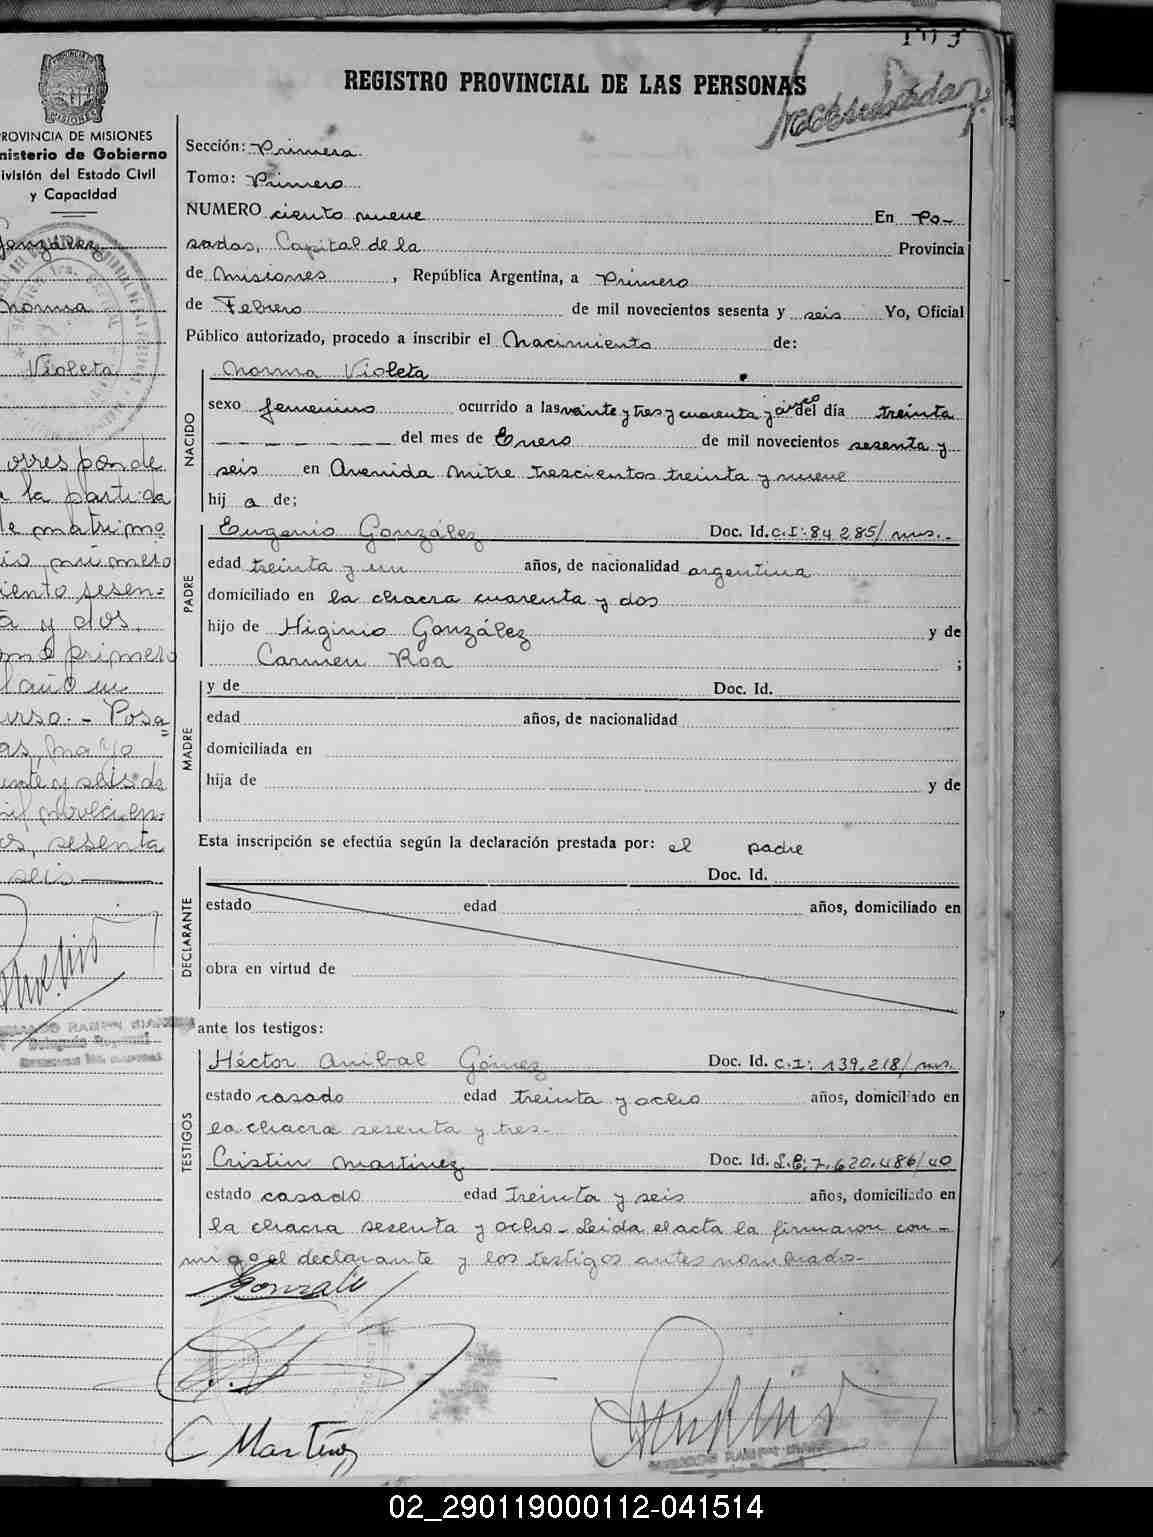 REGISTRO PROVINCIAL DE LAS PERSONAS
MISIONES
PROVINCIA DE MISIONES
nisterio de Gobierno
ivisión del Estado Civil
y Capacidad
González
Norma
Violeta
orresponde
a la partida
de matrimo
nio número
ciento sesen=
ta y dos,
tomo primero
del año en
curso. - Posa
das, mayo
veinte y seis de
mil novecien=
tos, sesenta
seis
Sección: Primera
Tomo: Primero
NUMERO ciento nueve En Po-
sadas, Capital de la Provincia
de Misiones, República Argentina, a Primero
de Febrero de mil novecientos sesenta y seis Yo, Oficial
Público autorizado, procedo a inscribir el Nacimiento de:
Norma Violeta
NACIDO
sexo femenino ocurrido a las veinte y tres y cuarenta y cinco del día treinta
del mes de Enero de mil novecientos sesenta y
seis en Avenida Mitre trescientos treinta y nueve
hij a de;
PADRE
Eugenio González Doc. Id. C.I: 84 285/ms.-
edad treinta y un años, de nacionalidad argentina
domiciliado en la chacra cuarenta y dos
hijo de Higinio González y de
Carmen Roa ;
MADRE
y de Doc. Id.
edad años, de nacionalidad
domiciliada en
hija de y de
Esta inscripción se efectúa según la declaración prestada por: el padre
DECLARANTE
Doc. Id.
estado edad años, domiciliado en
obra en virtud de
ante los testigos:
TESTIGOS
Héctor Anibal Gómez Doc. Id. C.I: 139.218/ms.
estado casado edad treinta y ocho años, domiciliado en
la chacra sesenta y tres-
Cristin Martínez Doc. Id. L.E: 7.620.486/40
estado casado edad treinta y seis años, domiciliado en
la chacra sesenta y ocho - Leida el acta la firmaron con-
migo el declarante y los testigos antes nombrados-
Gonzalez
C Martínez
02_290119000112-041514